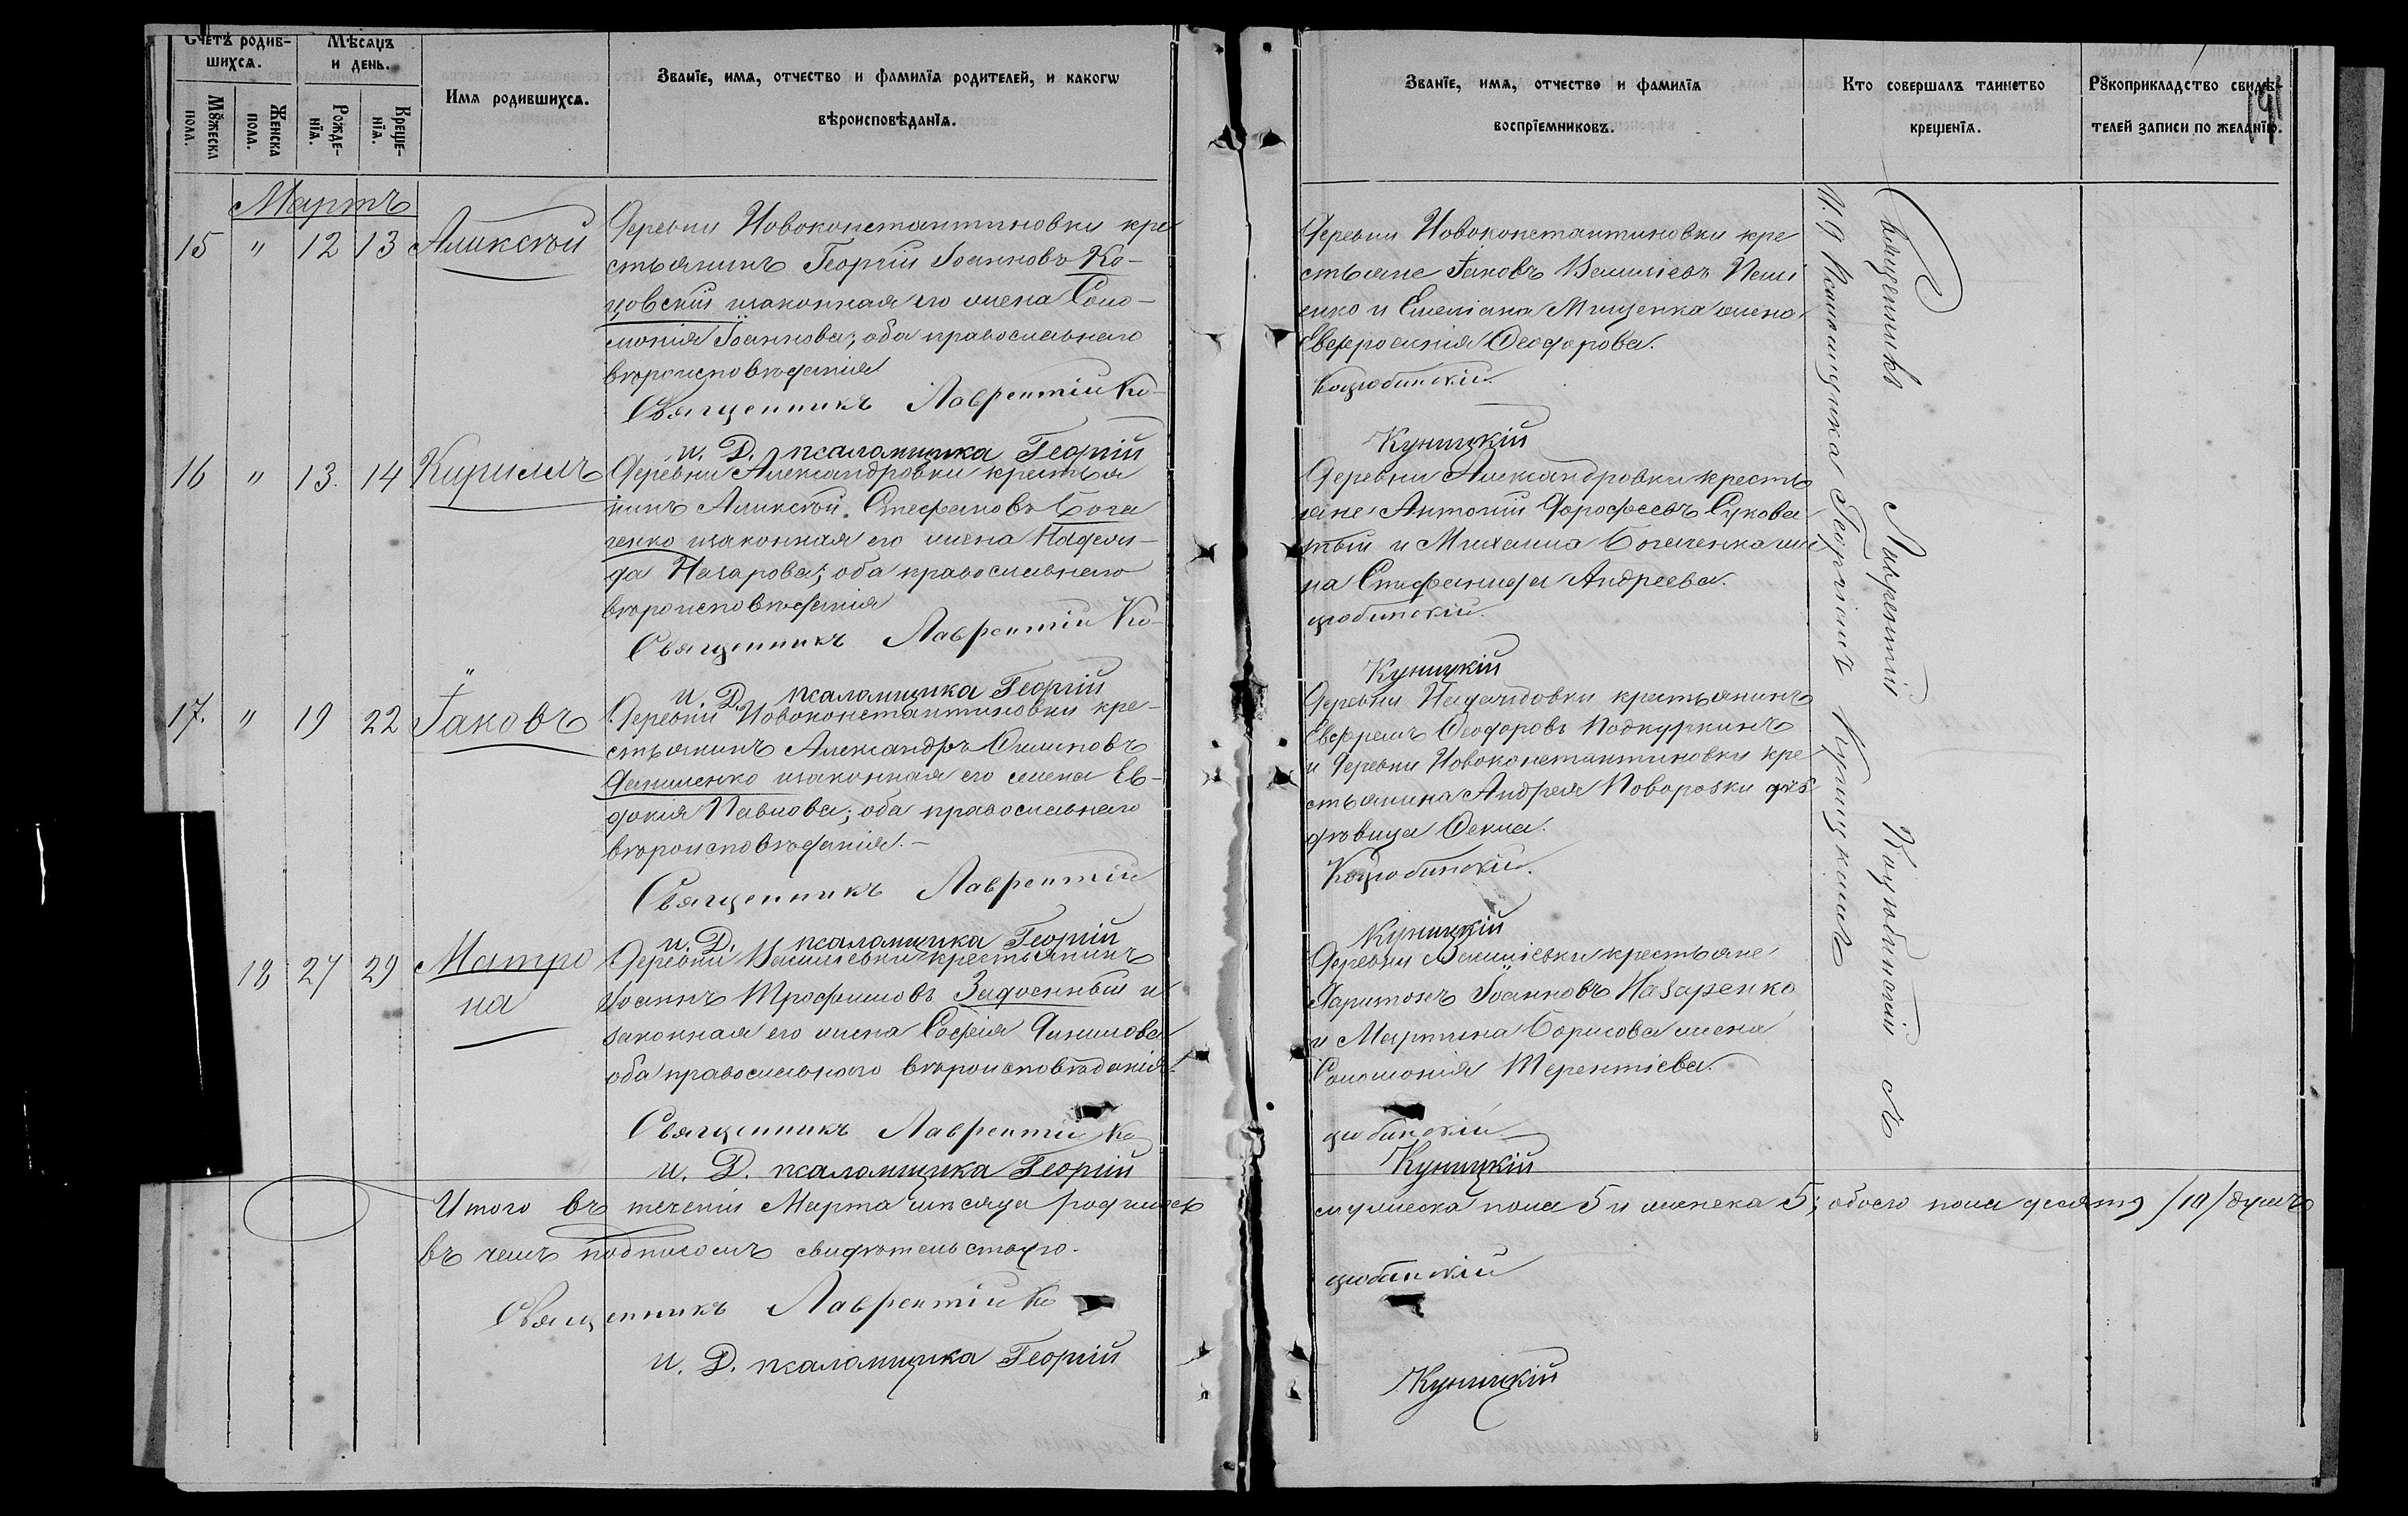 Счетъ родив-
шихся.
Мѣсяцъ
и день.
Мꙋжеска
пола.
Женска
пола.
Рожде-
нїя.
Креще-
нїя.
Имя родившихся.
Званїе, имя, отчество и фамилїя родителей, и какогѡ
вѣроисповѣданїя.
Мартъ
15 " 12 13 Алиексѣй
Деревни Новоконстантиновки кре
стьянинъ Георгій Іоанновъ Ко-
цовскій изаконная его жена Соло-
монія Іоаннова; оба православнаго
вѣроисповѣданія
Священникъ Лаврентій Ко-
и. Д. псаломщика Георгій
16 " 13. 14 Кириллъ
Деревни Александровки крестья
нинъ Алиексѣй Стефановъ Бога
ченко изаконная его жена Надеж-
да Назарова; оба православнаго
вѣроисповѣданія
Священникъ Лаврентій Ко-
и. Д. псаломщика Георгій
17. " 19 22 Іаковъ
Деревни Новоконстантиновки кре-
стьянинъ Александръ Филиповъ
Даниленко изаконная его жена Ев-
докія Павлова; оба православнаго
вѣроисповѣданія.-
Священникъ Лаврентій
и. Д. псаломщика Георгій
18 27 29 Матро
на
Деревни Василіевки крестьянинъ
Іоаннъ Трофимовъ Задоенный и
законная его жена Софія Данилова
оба православнаго вѣроисповѣданія.
Священникъ Лаврентій Ко
и. Д. псаломщика Георгій
Итого въ теченіи Марта мѣсяца родилось
въ чемъ подписомъ свидѣтельствую.
Священникъ Лаврентій Ко
и. Д. псаломщика Георгій
Званїе, имя, отчество и фамилїя
воспрїемниковъ.
Кто совершалъ таинство
крещенїя.
Рꙋкоприкладство свидѣ-
телей записи по желанїю.
191
Деревни Новоконстантиновки кре
стьяне Іаковъ Василіевъ
и Емеліана Мищенка жена
Евфросинія Ѳеодорова.
Коцюбинскій.
Куницкій
Деревни Александровки кресть
яне Антоній Дорофеевъ Сукова
тый и Михаила Богаченка же
на Стефанида Андреева.
цюбинскій.
Куницкій
Деревни крестьянинъ
Евфремъ Ѳеодоровъ
и Деревни Новоконстантиновки кре
стьянина Андрея
дѣвица Ѳекла.
Коцюбинскій.
Куницкій
Деревни Василіевки крестьяне
Харитонъ Іоанновъ Назаренко
и Мартина Борисова жена
Соломонія Терентіева.
цюбинскій
Куницкій
мужеска пола 5 и женска 5; обоего пола десять /10/ душъ
цюбинскій
Куницкій
Священникъ Лаврентій Коцюбинскій съ
И. Д. Псаломщика Георгіемъ Куницкимъ